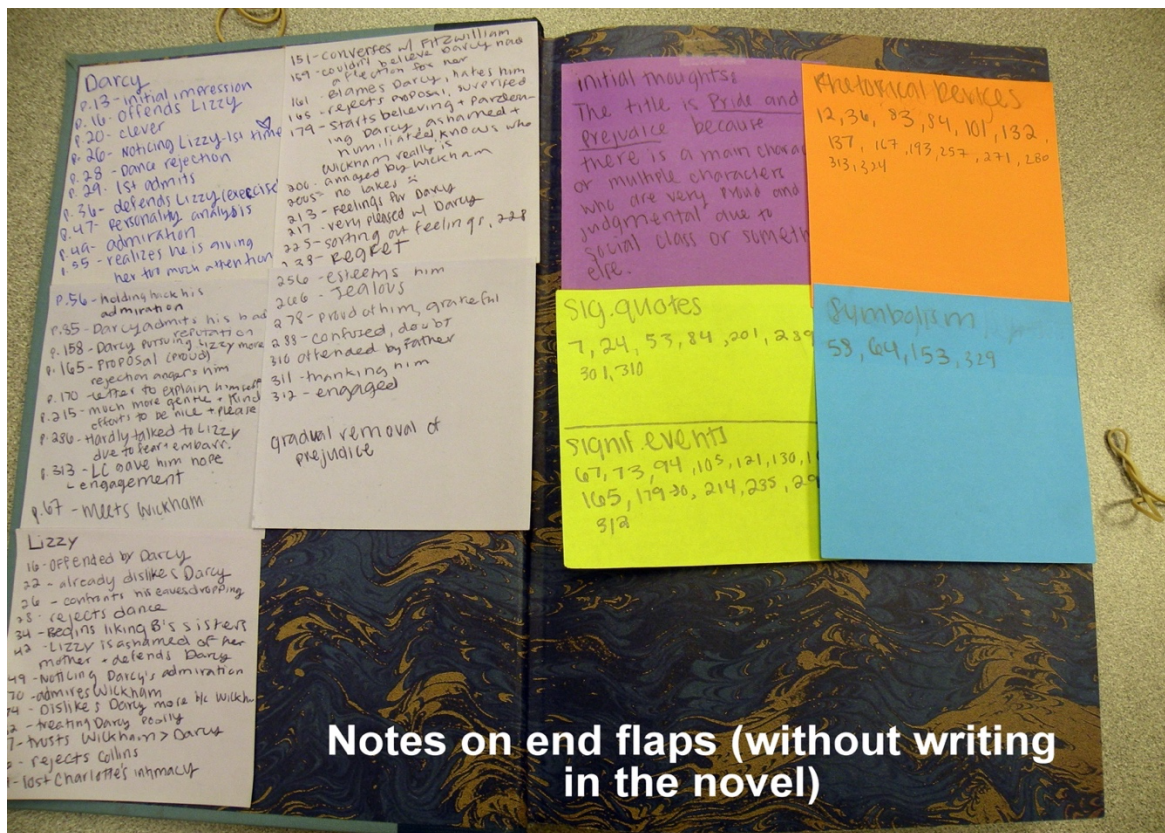 Darcy
p.13 - initial impression
p.16 - Offends Lizzy
p.20 - clever
p.26 - Noticing Lizzy 1st time
p.28 - Dance rejection
p.29 - 1st admits
p.36 - defends Lizzy (exercise
p.47 - Personality analysis
p.49 - admiration
p.55 - realizes he is giving
her too much attention
p.56 - holding back his
admiration
p.85 - Darcy admits his bad
reputation
p.158 - Darcy pursuing Lizzy more
p.165 - Proposal (proud)
rejection angers him
p.170 - letter to explain himself
p.215 - much more gentle + kind
efforts to be nice + please
p.286 - Hardly talked to Lizzy
due to fear + embarr.
p.313 - LC gave him hope
engagement
p.67 - Meets Wickham
Lizzy
16 - offended by Darcy
22 - already dislikes Darcy
26 - his eavesdropping
28 - rejects dance
34 - Begins liking B's sisters
42 - Lizzy is ashamed of her
mother + defends Darcy
49 - Noticing Darcy's admiration
70 - admires Wickham
- Dislikes Darcy more b/c Wickh
- treating Darcy poorly
- trusts Wickham > Darcy
- rejects Collins
- lost Charlotte's intimacy
151 - converses w/ Fitzwilliam
159 - couldn't believe Darcy had
affection for her
161 blames Darcy, hates him
165 - rejects proposal, surprised
179 - starts believing + pardon-
ing Darcy, ashamed +
humiliated, knows who
Wickham really is
206 - annoyed by Wickham
no lakes
213 - Feelings for Darcy
217 - very pleased w/ Darcy
225 - sorting out feelings, 228
- Regret
256 - esteems him
266 - Jealous
278 - proud of him, grateful
288 - confused, doubt
310 offended by Father
311 - thanking him
312 - engaged
gradual removal of
prejudice
initial thoughts:
The title is Pride and
Prejudice because
there is a main charac
or multiple characters
who are very proud and
judgmental due to
social class or someth
else.
Rhetorical Devices
12, 36, 83, 84, 101, 132,
137, 167, 193, 257, 271, 280
313, 324
Sig. quotes
7, 24, 53, 84, 201, 239
301, 310
signif. events
67, 73, 94, 105, 121, 130,
165, 179-80, 214, 235,
312
Symbolism
53, 64, 153, 329
Notes on end flaps (without writing
in the novel)